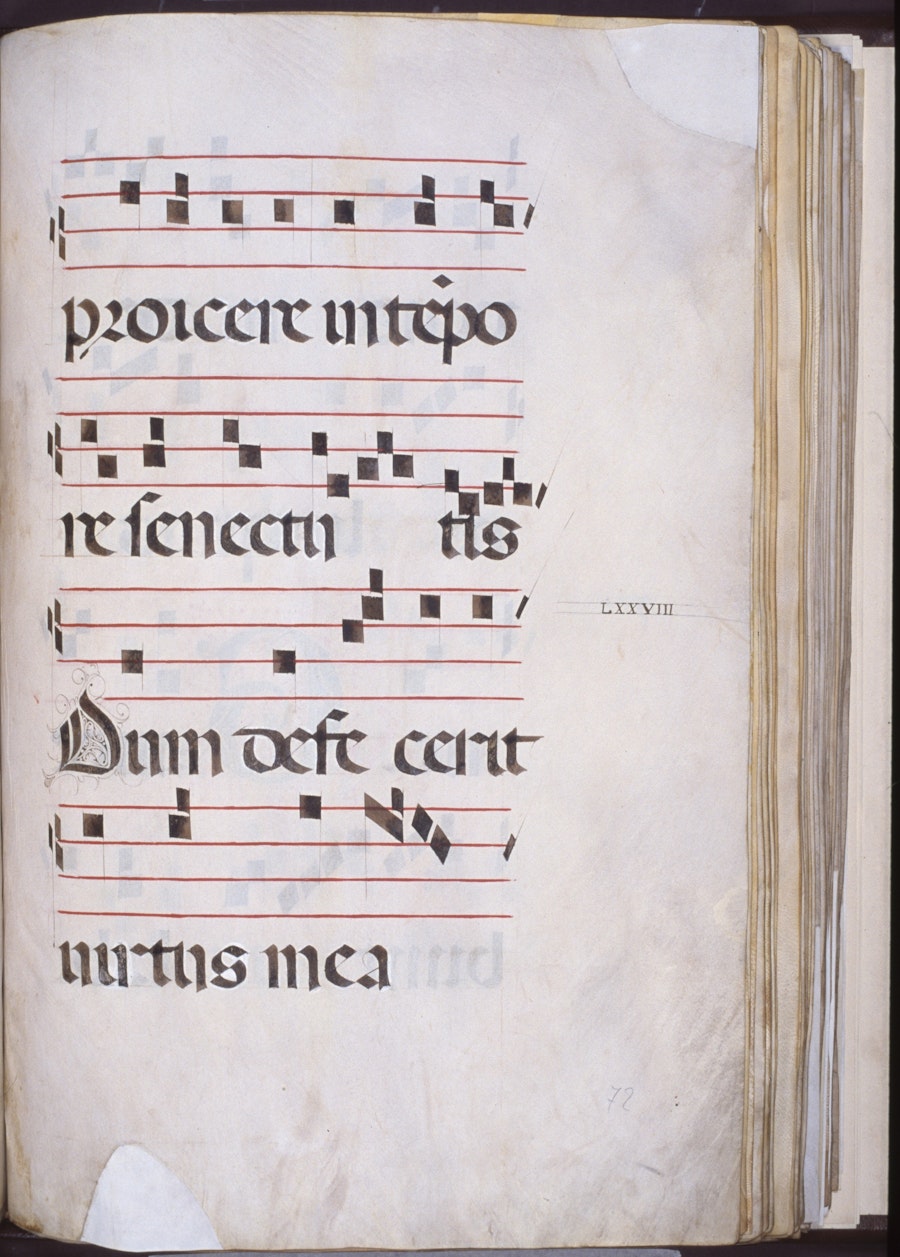 proicere in tēpo
re senectu tis
LXXVIII
Dum defe cerit
uirtus mea
72